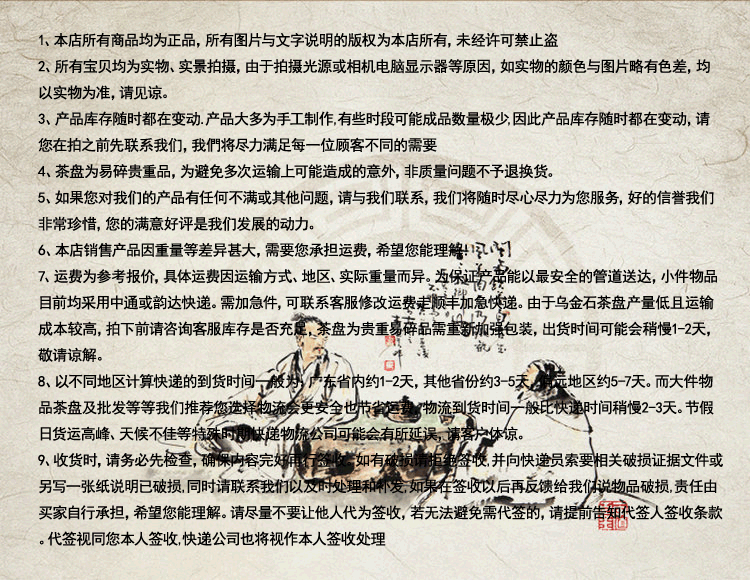 1、本店所有商品均为正品，所有图片与文字说明的版权为本店所有，未经许可禁止盗
2、所有宝贝均为实物、实景拍摄，由于拍摄光源或相机电脑显示器等原因，如实物的颜色与图片略有色差，均
以实物为准，请见谅。
3、产品库存随时都在变动.产品大多为手工制作.有些时段可能成品数量极少,因此产品库存随时都在变动，请
您在拍之前先联系我们，我们将尽力满足每一位顾客不同的需要
4、茶盘为易碎贵重品，为避免多次运输上可能造成的意外，非质量问题不予退换货。
5、如果您对我们的产品有任何不满或其他问题，请与我们联系，我们将随时尽心尽力为您服务，好的信誉我们
非常珍惜，您的满意好评是我们发展的动力。
6、本店销售产品因重量等差异甚大，需要您承担运费，希望您能理解！
7、运费为参考报价，具体运费因运输方式、地区、实际重量而异。为保证产品能以最安全的管道送达，小件物品
目前均采用中通或韵达快递。需加急件，可联系客服修改运费走顺丰加急快递。由于乌金石茶盘产量低且运输
成本较高，拍下前请咨询客服库存是否充足，茶盘为贵重易碎品需重新加强包装，出货时间可能会稍慢1-2天，
敬请谅解。
8、以不同地区计算快递的到货时间一般为，广东省内约1-2天，其他省份约3-5天，偏远地区约5-7天。而大件物
品茶盘及批发等等我们推荐您选择物流会更安全也节省运费，物流到货时间一般比快递时间稍慢2-3天。节假
日货运高峰、天候不佳等特殊时期快递物流公司可能会有所延误，请客户体谅。
9、收货时，请务必先检查，确保内容完好再行签收。如有破损请拒绝签收,并向快递员索要相关破损证据文件或
另写一张纸说明已破损,同时请联系我们以及时处理和补发,如果在签收以后再反馈给我们说物品破损,责任由
买家自行承担，希望您能理解。请尽量不要让他人代为签收，若无法避免需代签的,请提前告知代签人签收条款
。代签视同您本人签收,快递公司也将视作本人签收处理